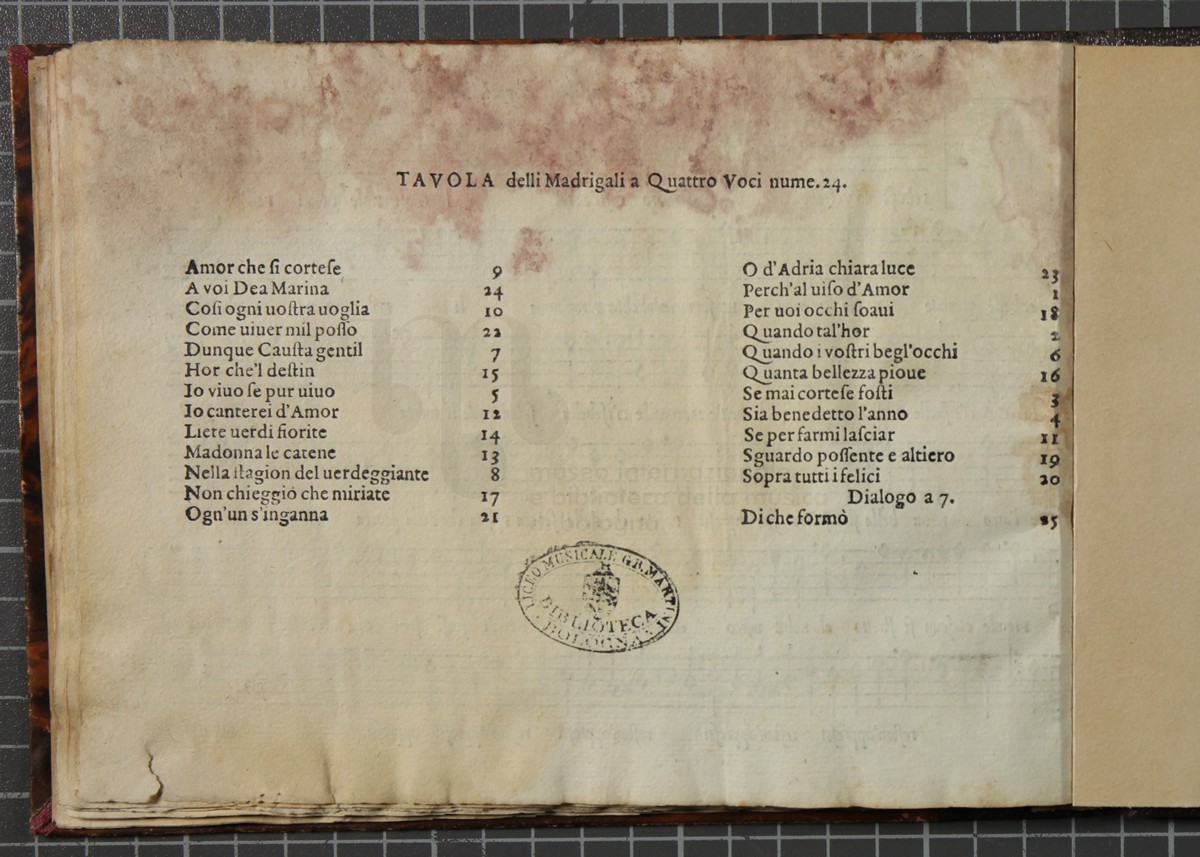 TAVOLA delli Madrigali a Quattro Voci nume.24.
Amor che ſi corteſe 9
A voi Dea Marina 24
Coſi ogni uoſtra uoglia 10
Come uiuer mil poſſo 22
Dunque Cauſta gentil 7
Hor che'l deſtin 15
Io viuo ſe pur uiuo 5
Io canterei d'Amor 12
Liete uerdi fiorite 14
Madonna le catene 13
Nella ſtagion del uerdeggiante 8
Non chieggio che miriate 17
Ogn'un s'inganna 21
O d'Adria chiara luce 23
Perch'al uiſo d'Amor 1
Per uoi occhi ſoaui 18
Quando tal'hor 2
Quando i voſtri begl'occhi 6
Quanta bellezza pioue 16
Se mai corteſe foſti 3
Sia benedetto l'anno 4
Se per farmi laſciar 11
Sguardo poſſente e altiero 19
Sopra tutti i felici 20
Dialogo a 7.
Di che formò 25
LICEO MUSICALE G.B. MARTINI
BIBLIOTECA
BOLOGNA
museo interna
e biblioteca della musica
di bologna